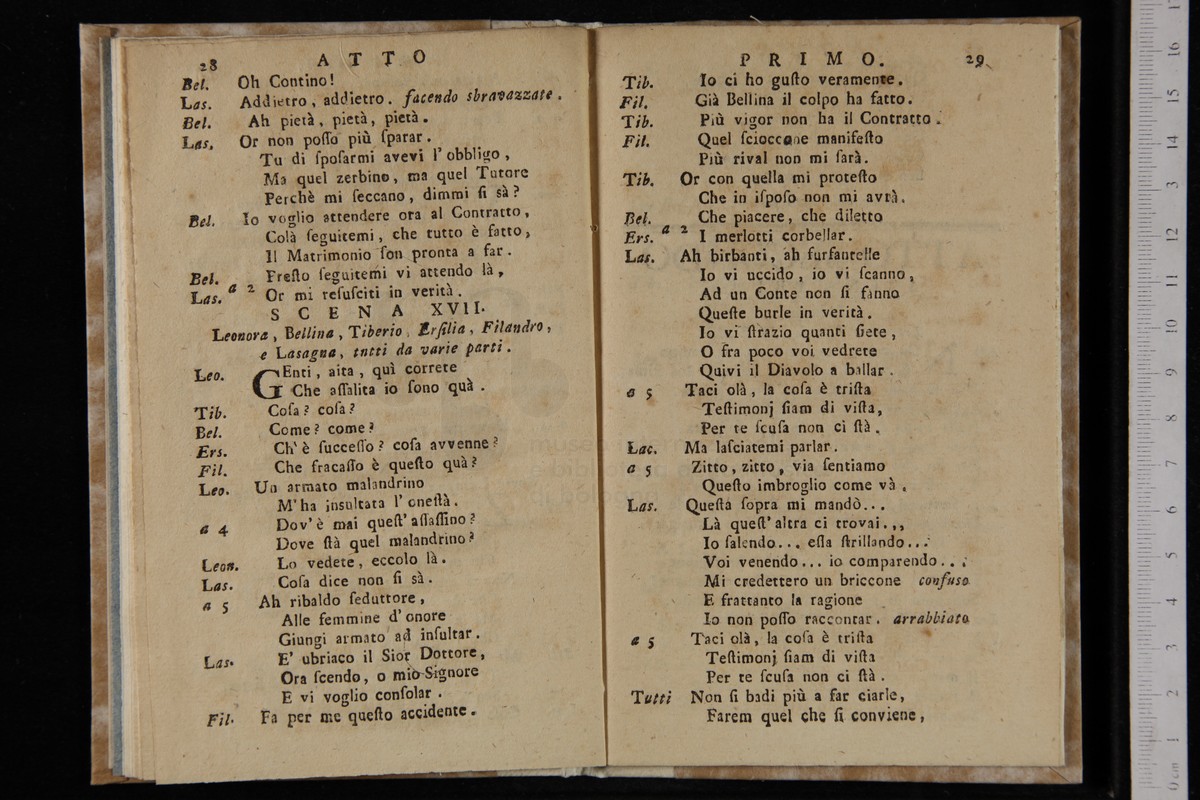 28 ATTO
Bel. Oh Contino!
Las. Addietro, addietro. facendo sbravazzate.
Bel. Ah pietà, pietà, pietà.
Las. Or non poſſo più ſparar.
Tu di ſpoſarmi avevi l'obbligo,
Ma quel zerbino, ma quel Tutore
Perchè mi ſeccano, dimmi ſi sà?
Bel. Io voglio attendere ora al Contratto,
Colà ſeguitemi, che tutto è fatto,
Il Matrimonio ſon pronta a far.
Bel. Preſto ſeguitemi vi attendo là,
Las. a 2 Or mi reſuſciti in verità.
SCENA XVII.
Leonora, Bellina, Tiberio, Erſilia, Filandro,
e Lasagna, tutti da varie parti.
Leo. GEnti, aita, quì correte
Che aſſalita io ſono quà.
Tib. Coſa? coſa?
Bel. Come? come?
Ers. Ch'è ſucceſſo? coſa avvenne?
Fil. Che fracaſſo è queſto quà?
Leo. Un armato malandrino
M'ha inſultata l'oneſtà.
a 4 Dov'è mai queſt'aſſaſſino?
Dove ſtà quel malandrino?
Leon. Lo vedete, eccolo là.
Las. Coſa dice non ſi sà.
a 5 Ah ribaldo ſeduttore,
Alle femmine d'onore
Giungi armato ad inſultar.
Las. E' ubriaco il Sior Dottore,
Ora ſcendo, o mio Signore
E vi voglio conſolar.
Fil. Fa per me queſto accidente.
PRIMO. 29
Tib. Io ci ho guſto veramente.
Fil. Già Bellina il colpo ha fatto.
Tib. Più vigor non ha il Contratto.
Fil. Quel ſcioccone manifeſto
Più rival non mi ſarà.
Tib. Or con quella mi proteſto
Che in iſpoſo non mi avrà.
Bel. Che piacere, che diletto
Ers. a 2 I merlotti corbellar.
Las. Ah birbanti, ah furfantelle
Io vi uccido, io vi ſcanno,
Ad un Conte non ſi fanno
Queſte burle in verità.
Io vi ſtrazio quanti ſiete,
O fra poco voi vedrete
Quivi il Diavolo a ballar.
a 5 Taci olà, la coſa è triſta
Teſtimonj ſiam di viſta,
Per te ſcuſa non ci ſtà.
Lac. Ma laſciatemi parlar.
a 5 Zitto, zitto, via ſentiamo
Queſto imbroglio come và.
Las. Queſta ſopra mi mandò...
Là queſt'altra ci trovai.,,
Io ſalendo... eſſa ſtrillando...
Voi venendo... io comparendo...
Mi credettero un briccone confuso
E frattanto la ragione
Io non poſſo raccontar. arrabbiato
a 5 Taci olà, la coſa è triſta
Teſtimonj ſiam di viſta
Per te ſcuſa non ci ſtà.
Tutti Non ſi badi più a far ciarle,
Farem quel che ſi conviene,